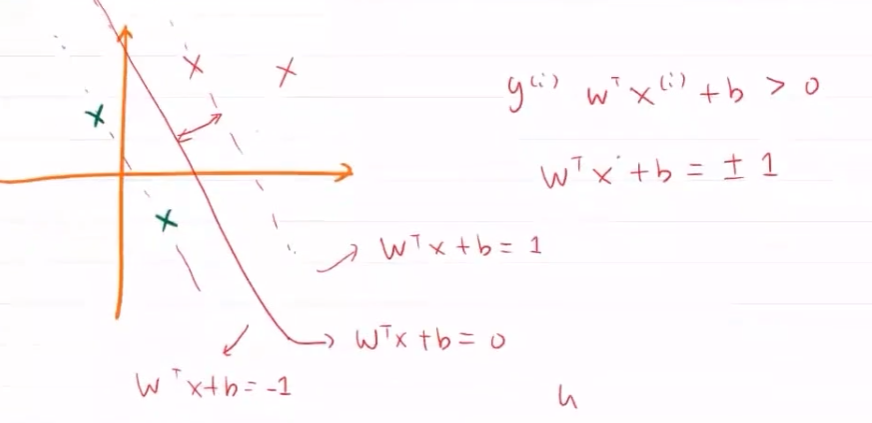 y⁽ⁱ⁾ wᵀx⁽ⁱ⁾ + b > 0
wᵀx + b = ± 1
wᵀx + b = 1
wᵀx + b = 0
wᵀx + b = -1
h